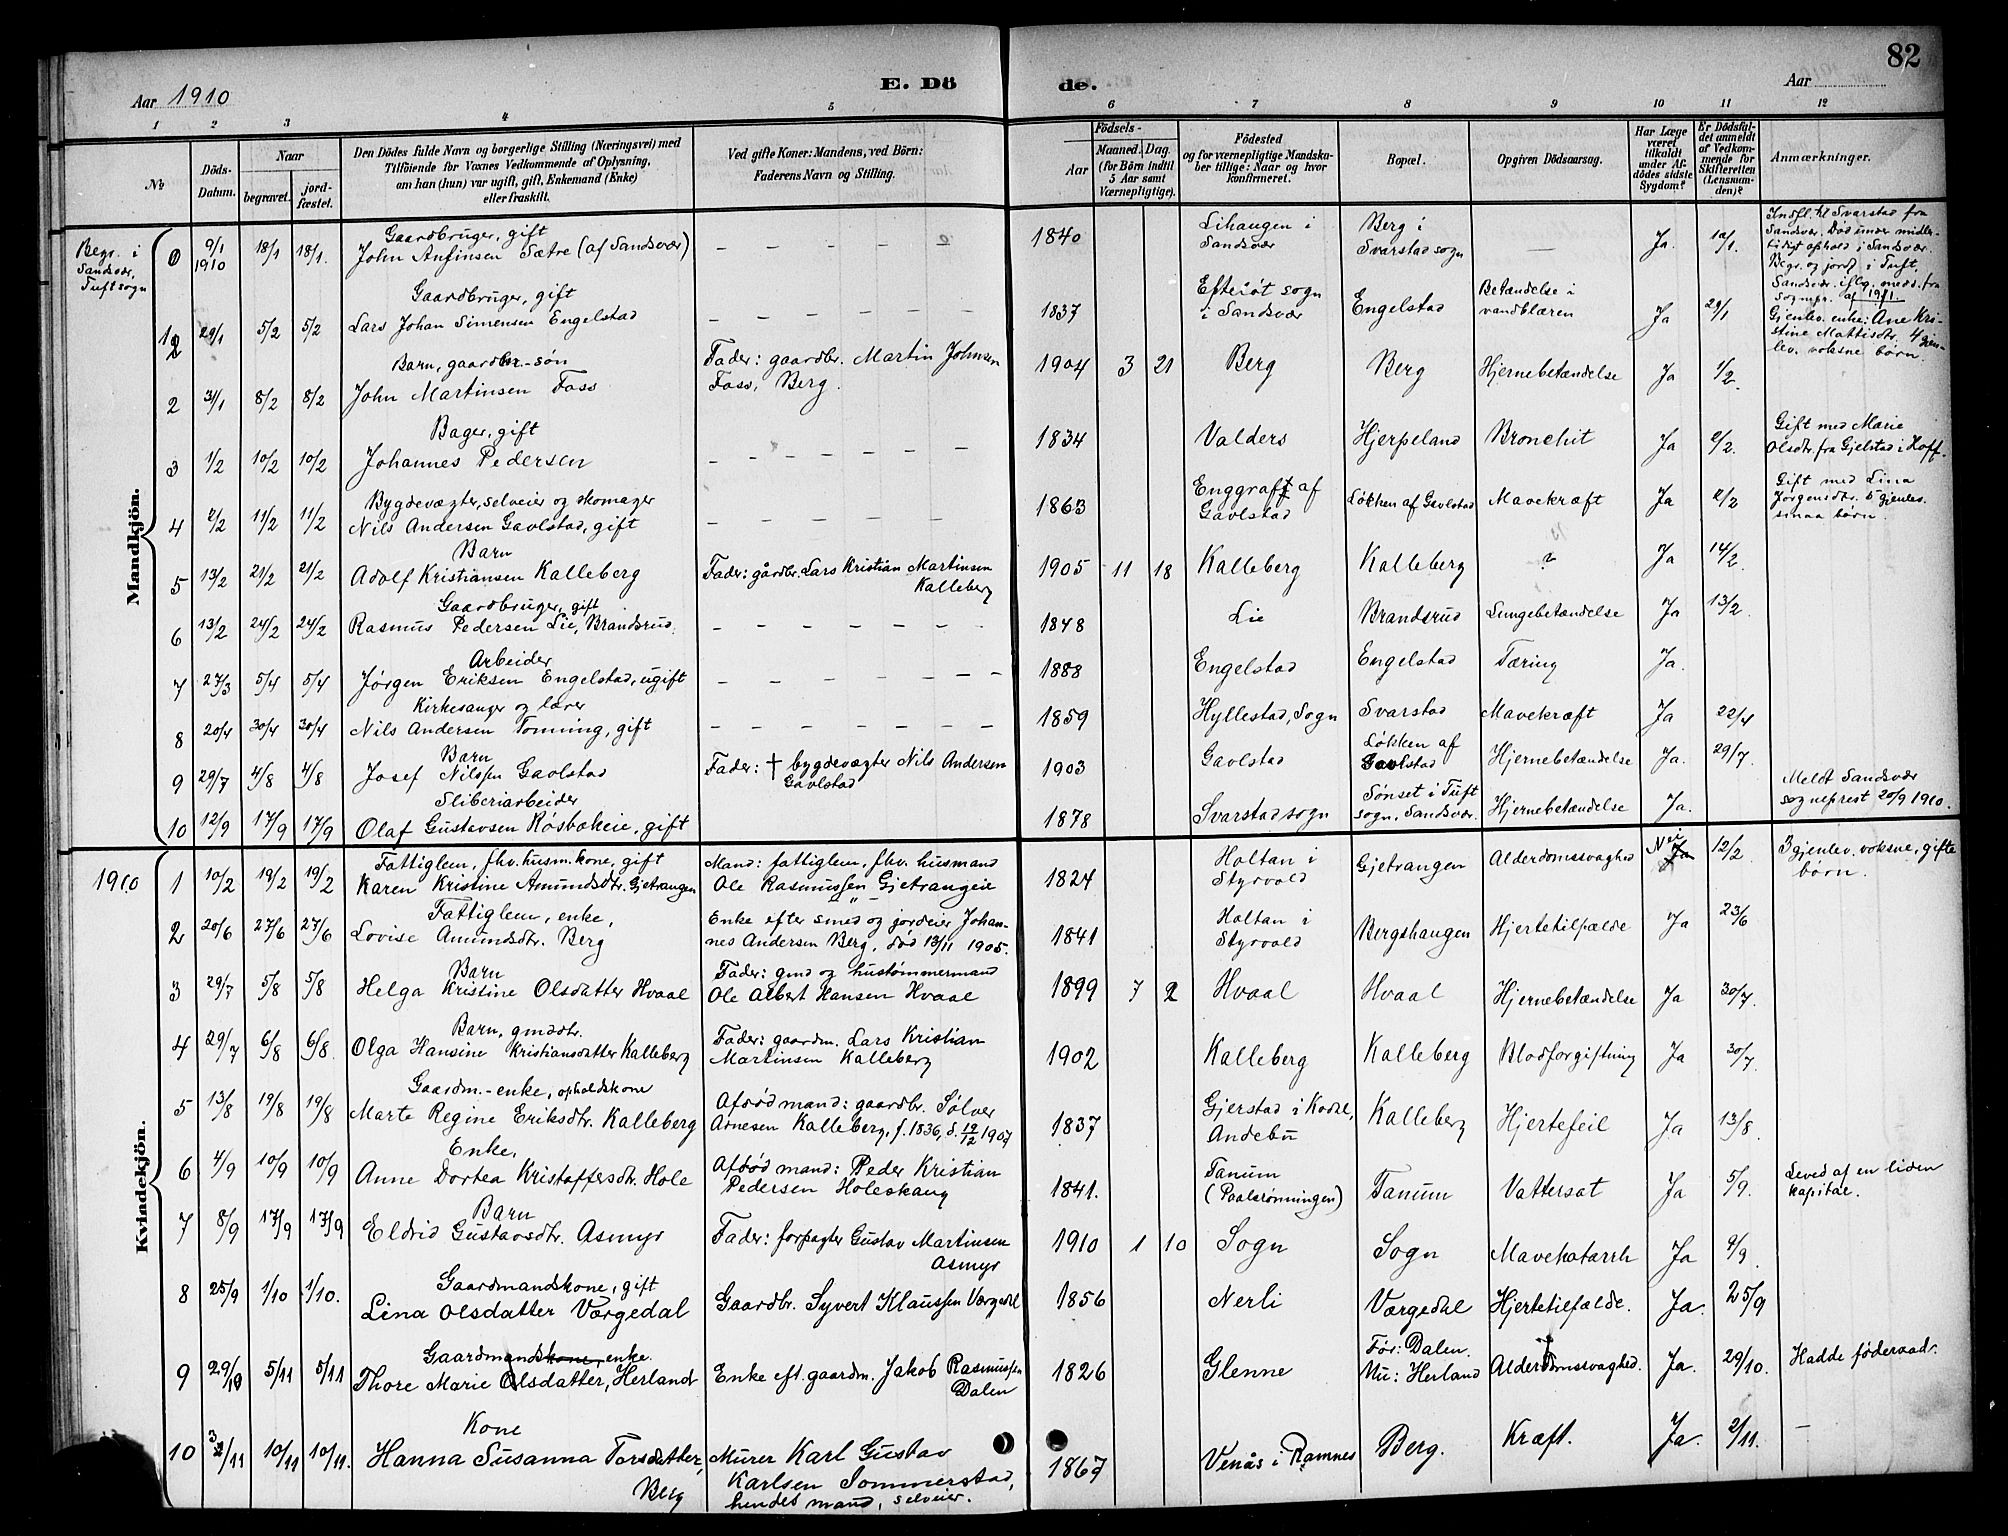 82
Aar 1910
E. Dö
de.
Aar
1 2 3 4 5 6 7 8 9 10 11 12
№
Döds-
Datum.
Naar
begravet.
jord-
fæstet.
Den Dödes fulde Navn og borgerlige Stilling (Næringsvei) med
Tilföiende for Voxnes Vedkommende af Oplysning,
om han (hun) var ugift, gift, Enkemand (Enke)
eller fraskilt.
Ved gifte Koner: Mandens, ved Börn:
Faderens Navn og Stilling.
Födsels-
Aar
Maaned. Dag.
(for Börn indtil
5 Aar samt
Værnepligtige).
Födested
og for værnepligtige Mandska-
ber tillige: Naar og hvor
konfirmeret.
Bopæl.
Opgiven Dödsaarsag.
Har Læge
været
tilkaldt
under Af-
dödes sidste
Sygdom?
Er Dödsfal-
det anmeldt
af Vedkom-
mende for
Skifteretten
(Lensman-
den)?
Anmærkninger.
Mandkjön.
Begr. i
Sandsvær,
Tuft sogn
0 9/1 1910 18/1 18/1.
Gaardbruger, gift
John Anfinsen Sætre (af Sandsvær)
1840
Lihaugen i
Sandsvær
Berg i
Svarstad sogn
— Ja. 12/1.
Indfl. til Svarstad fra
Sandsvær. Død under midler-
tidigt ophold i Sandsvær.
Begr. og jordf. i Tuft,
Sandsvær. iflg. medd. fra
sognepr. af 19/1.
1 29/1 5/2 5/2
Gaardbruger, gift
Lars Johan Simensen Engelstad
1837
Efteløt sogn
i Sandsvær
Engelstad
Betændelse i
vandblæren
Ja 29/1
Gjenlev. enke: Ane Kri-
stine Mattisdtr. 4 gjen-
lev. voksne børn.
2 31/1 8/2 8/2
Barn, gaardbr.-søn
John Martinsen Foss
Fader: gaardbr. Martin Johnsen
Foss, Berg.
1904 3 21 Berg Berg Hjernebetændelse Ja 1/2.
3 1/2 10/2 10/2
Bager, gift
Johannes Pedersen
1834 Valders Hjerpeland Bronchit Ja 2/2.
Gift med Marie
Olsdtr. fra Gjelstad i Hoff.
4 2/2 11/2 11/2
Bygdevægter, selveier og skomager
Nils Andersen Gavlstad, gift
1863
Enggraff af
Gavlstad
Løkken af Gavlstad Mavekræft Ja 2/2
Gift med Lina
Jørgensdtr. 5 gjenlev.
smaa børn.
5 13/2 21/2 21/2
Barn
Adolf Kristiansen Kalleberg
Fader: gårdbr. Lars Kristian Martinsen
Kalleberg
1905 11 18 Kalleberg Kalleberg ? Ja 14/2.
6 13/2 24/2 24/2
Gaardbruger, gift
Rasmus Pedersen Lie, Brandsrud.
1848 Lie Brandsrud Lungebetændelse Ja 13/2.
7 27/3 5/4 5/4
Arbeider
Jørgen Eriksen Engelstad, ugift
1888 Engelstad Engelstad Tæring Ja.
8 20/4 30/4 30/4
Kirkesanger og lærer
Nils Andersen Tonning, gift
1859 Hyllestad, Sogn Svarstad Mavekræft Ja 22/4
9 29/7 4/8 4/8
Barn
Josef Nilssen Gavlstad
Fader: † bygdevægter Nils Andersen
Gavlstad
1903 Gavlstad
Løkken af
Gavlstad
Hjernebetændelse Ja. 29/7.
10 12/9 17/9 17/9
Sliberiarbeider
Olaf Gustavsen Røsbakeie, gift
1878 Svarstad sogn
Sønset i Tuft
sogn, Sandsvær.
Hjernebetændelse Ja.
Meldt Sandsvær
sogneprest 20/9 1910.
Kvindekjön.
1910
1 10/2 19/2 19/2
Fattiglem, fhv. husm. kone, gift
Karen Kristine Amundsdtr. Gjetrangen
Mand: fattiglem, fhv. husmand
Ole Rasmussen Gjetrangeie
1824
Holtan i
Styrvold
Gjetrangen Alderdomssvaghed Nei Ja 12/2.
3 gjenlev. voksne, gifte
børn.
2 20/6 27/6 27/6
Fattiglem, enke,
Lovise Amundsdtr. Berg
Enke efter smed og jordeier Johan-
nes Andersen Berg, død 13/11 1905.
1841
Holtan i
Styrvold
Bergshaugen Hjertetilfælde Ja 23/6
3 29/7 5/8 5/8
Barn
Helga Kristine Olsdatter Hvaal
Fader: gmd og hustømmermand
Ole Albert Hansen Hvaal
1899 7 2 Hvaal Hvaal Hjernebetændelse Ja 30/7.
4 29/7 6/8 6/8.
Barn, gmddtr.
Olga Hansine Kristiansdatter Kalleberg
Fader: gaardm. Lars Kristian
Martinsen Kalleberg
1902 Kalleberg Kalleberg Blodforgiftning Ja 30/7.
5 13/8 19/8 19/8
Gaardm.-enke, opholdskone
Marte Regine Eriksdtr. Kalleberg
Afdød mand: gaardbr. Sølver
Arnesen Kalleberg, f. 1836, d. 19/12 1907
1837
Gjerstad i Kodal,
Andebu
Kalleberg Hjertefeil Ja 13/8.
6 4/9 10/9 10/9
Enke,
Anne Dortea Kristoffersdtr. Hole
Afdød mand: Peder Kristian
Pedersen Holeskaug
1841.
Tanum
(Paalsrønningen)
Tanum Vattersot Ja 5/9.
Leved af en liden
kapital.
7 8/9 17/9 17/9
Barn
Eldrid Gustavsdtr. Asmyr
Fader: forpagter Gustav Martinsen
Asmyr
1910 1 10 Sogn Sogn Mavekatarrh Ja 9/9.
8 25/9 1/10 1/10.
Gaardmandskone, gift
Lina Olsdatter Vørgedal
Gaardbr. Syvert Klaussen Vørgedal
1856 Nerli Værgedal Hjertetilfælde. Ja. 25/9
9 29/10 5/11 5/11
Gaardmandskone, enke.
Thore Marie Olsdatter, Herland
Enke eft. gaardm. Jakob Rasmussen
Dalen
1826 Glenne
Før: Dalen.
Nu: Herland
Alderdomssvaghed. Ja. 29/10.
Hadde føderaad.
10 2/11 10/11 10/11.
Kone
Hanna Susanna Torsdatter,
Berg
Murer Karl Gustav
Karlsen Sommerstad,
hendes mand, selveier.
1867 Venås i Ramnes Berg. Kræft. Ja. 2/11. —